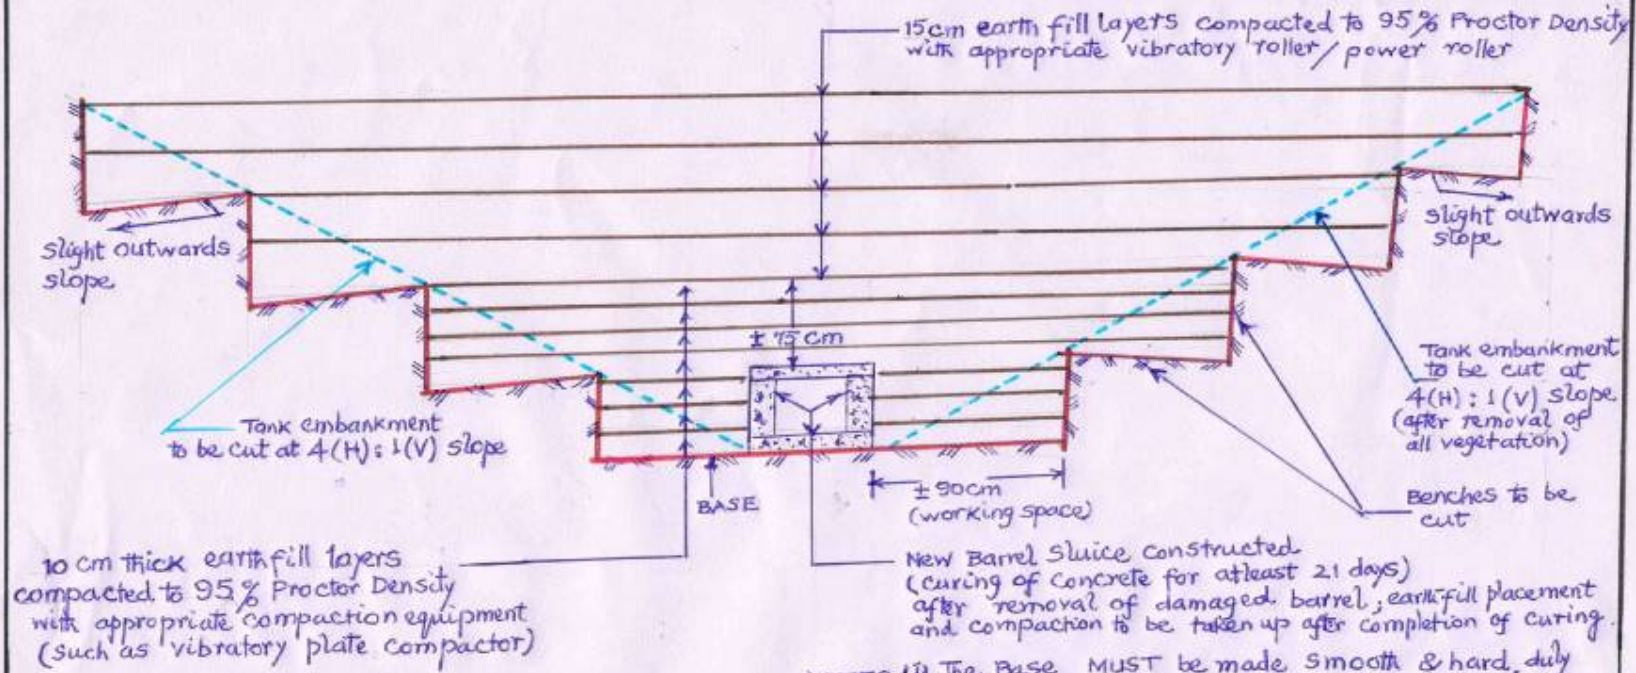 15cm earth fill layers compacted to 95% Proctor Density
with appropriate vibratory roller/power roller
slight outwards
slope
Slight outwards
slope
± 75 cm
Tank embankment
to be cut at 4(H):1(V) slope
Tank embankment
to be cut at
4(H):1(V) slope
(after removal of
all vegetation)
BASE
± 90cm
(working space)
Benches to be
cut
10 cm thick earthfill layers
compacted to 95% Proctor Density
with appropriate compaction equipment
(such as vibratory plate compactor)
New Barrel Sluice constructed
(curing of concrete for atleast 21 days)
after removal of damaged barrel; earthfill placement
and compaction to be taken up after completion of curing.
The Base MUST be made smooth & hard, duly